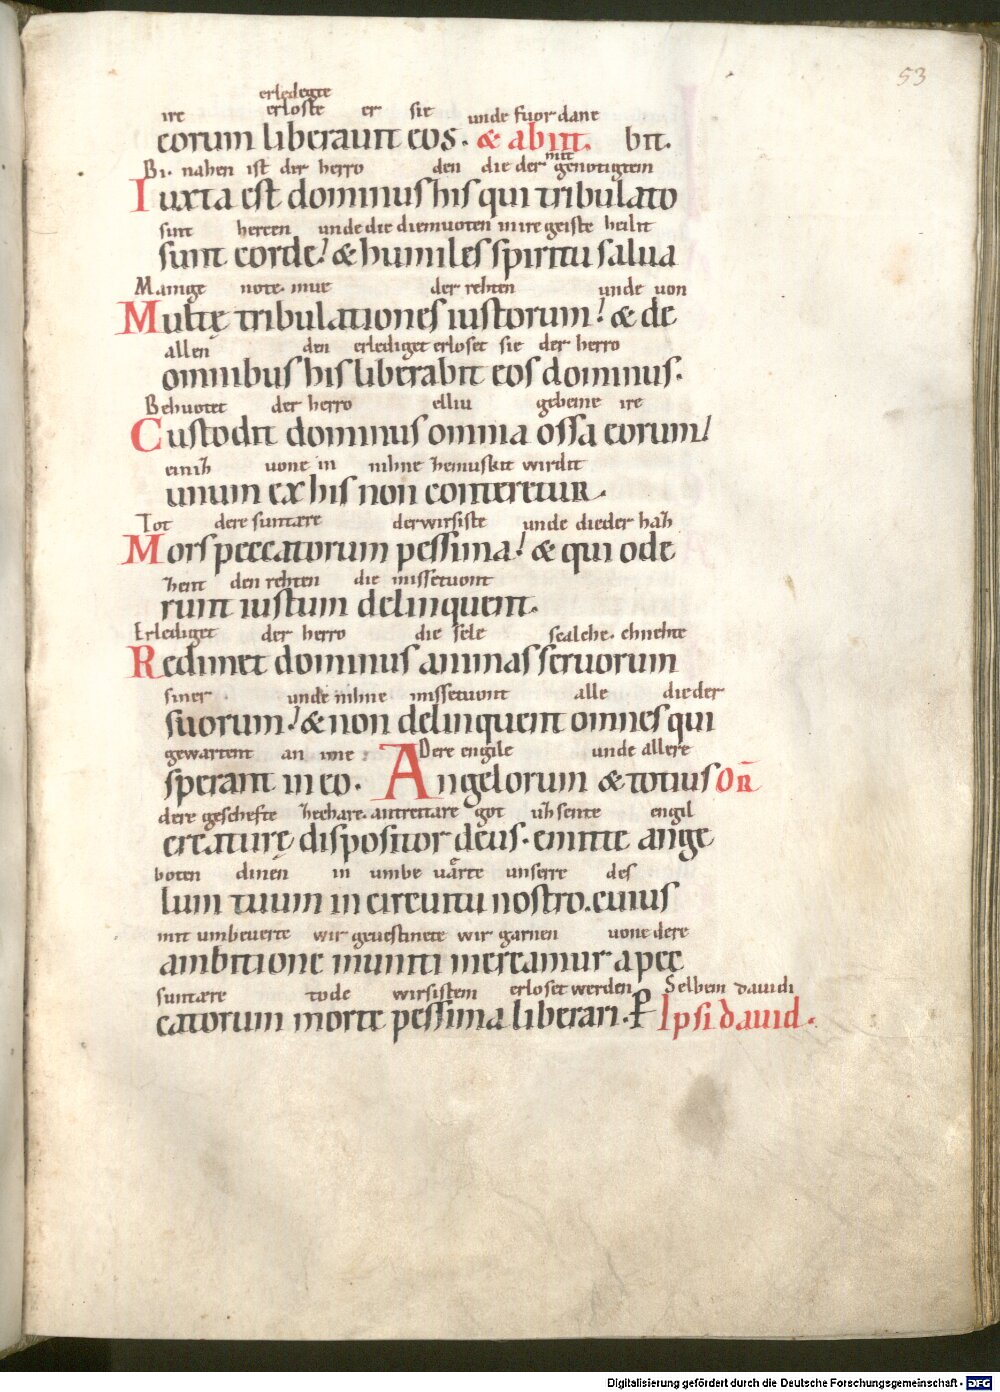 53
erledegte
ire erloste er sie unde fuor dane
eorum liberauit eos. & abiit. bit.
mit
Bi. nahen ist der herro den die der genotigtem
Iuxta est dominus his qui tribulato
sint hercen unde die diemuoten in ire geiste heilit
sunt corde! & humiles spiritu salua
Manige note. mue der rehten unde von
Multę tribulationes iustorum! & de
allen den erlediget erloset sie der herro
omnibus his liberabit eos dominus.
Behuotet der herro elliu gebeine ire
Custodit dominus omnia ossa eorum!
einiz uone in nihne zemuskit wirdit
unum ex his non conteretur.
Tot dere suntare der wirsiste unde die der haz
Mors peccatorum pessima! & qui ode
zent den rehten die missetuont
runt iustum delinquent.
Erlediget der herro die sele scalche. chnehte
Redimet dominus animas seruorum
siner unde nihne missetuont alle die der
suorum! & non delinquent omnes qui
gewartent an ime : Dere engile unde allere
sperant in eo. Angelorum & totius OR̄
dere geschefte zechare. antreitare got uzsente engil
creaturę dispositor deus. emitte ange
boten dinen in umbe uărte unserre des
lum tuum in circuitu nostro. cuius
mit umbeuerte wir geuestinete wir garnen uone dere
ambitione muniti mereamur a pec
suntære tode wirsistem erloset werden Selbem dauidi
catorum morte pessima liberari. P Ipsi dauid.
Digitalisierung gefördert durch die Deutsche Forschungsgemeinschaft - DFG